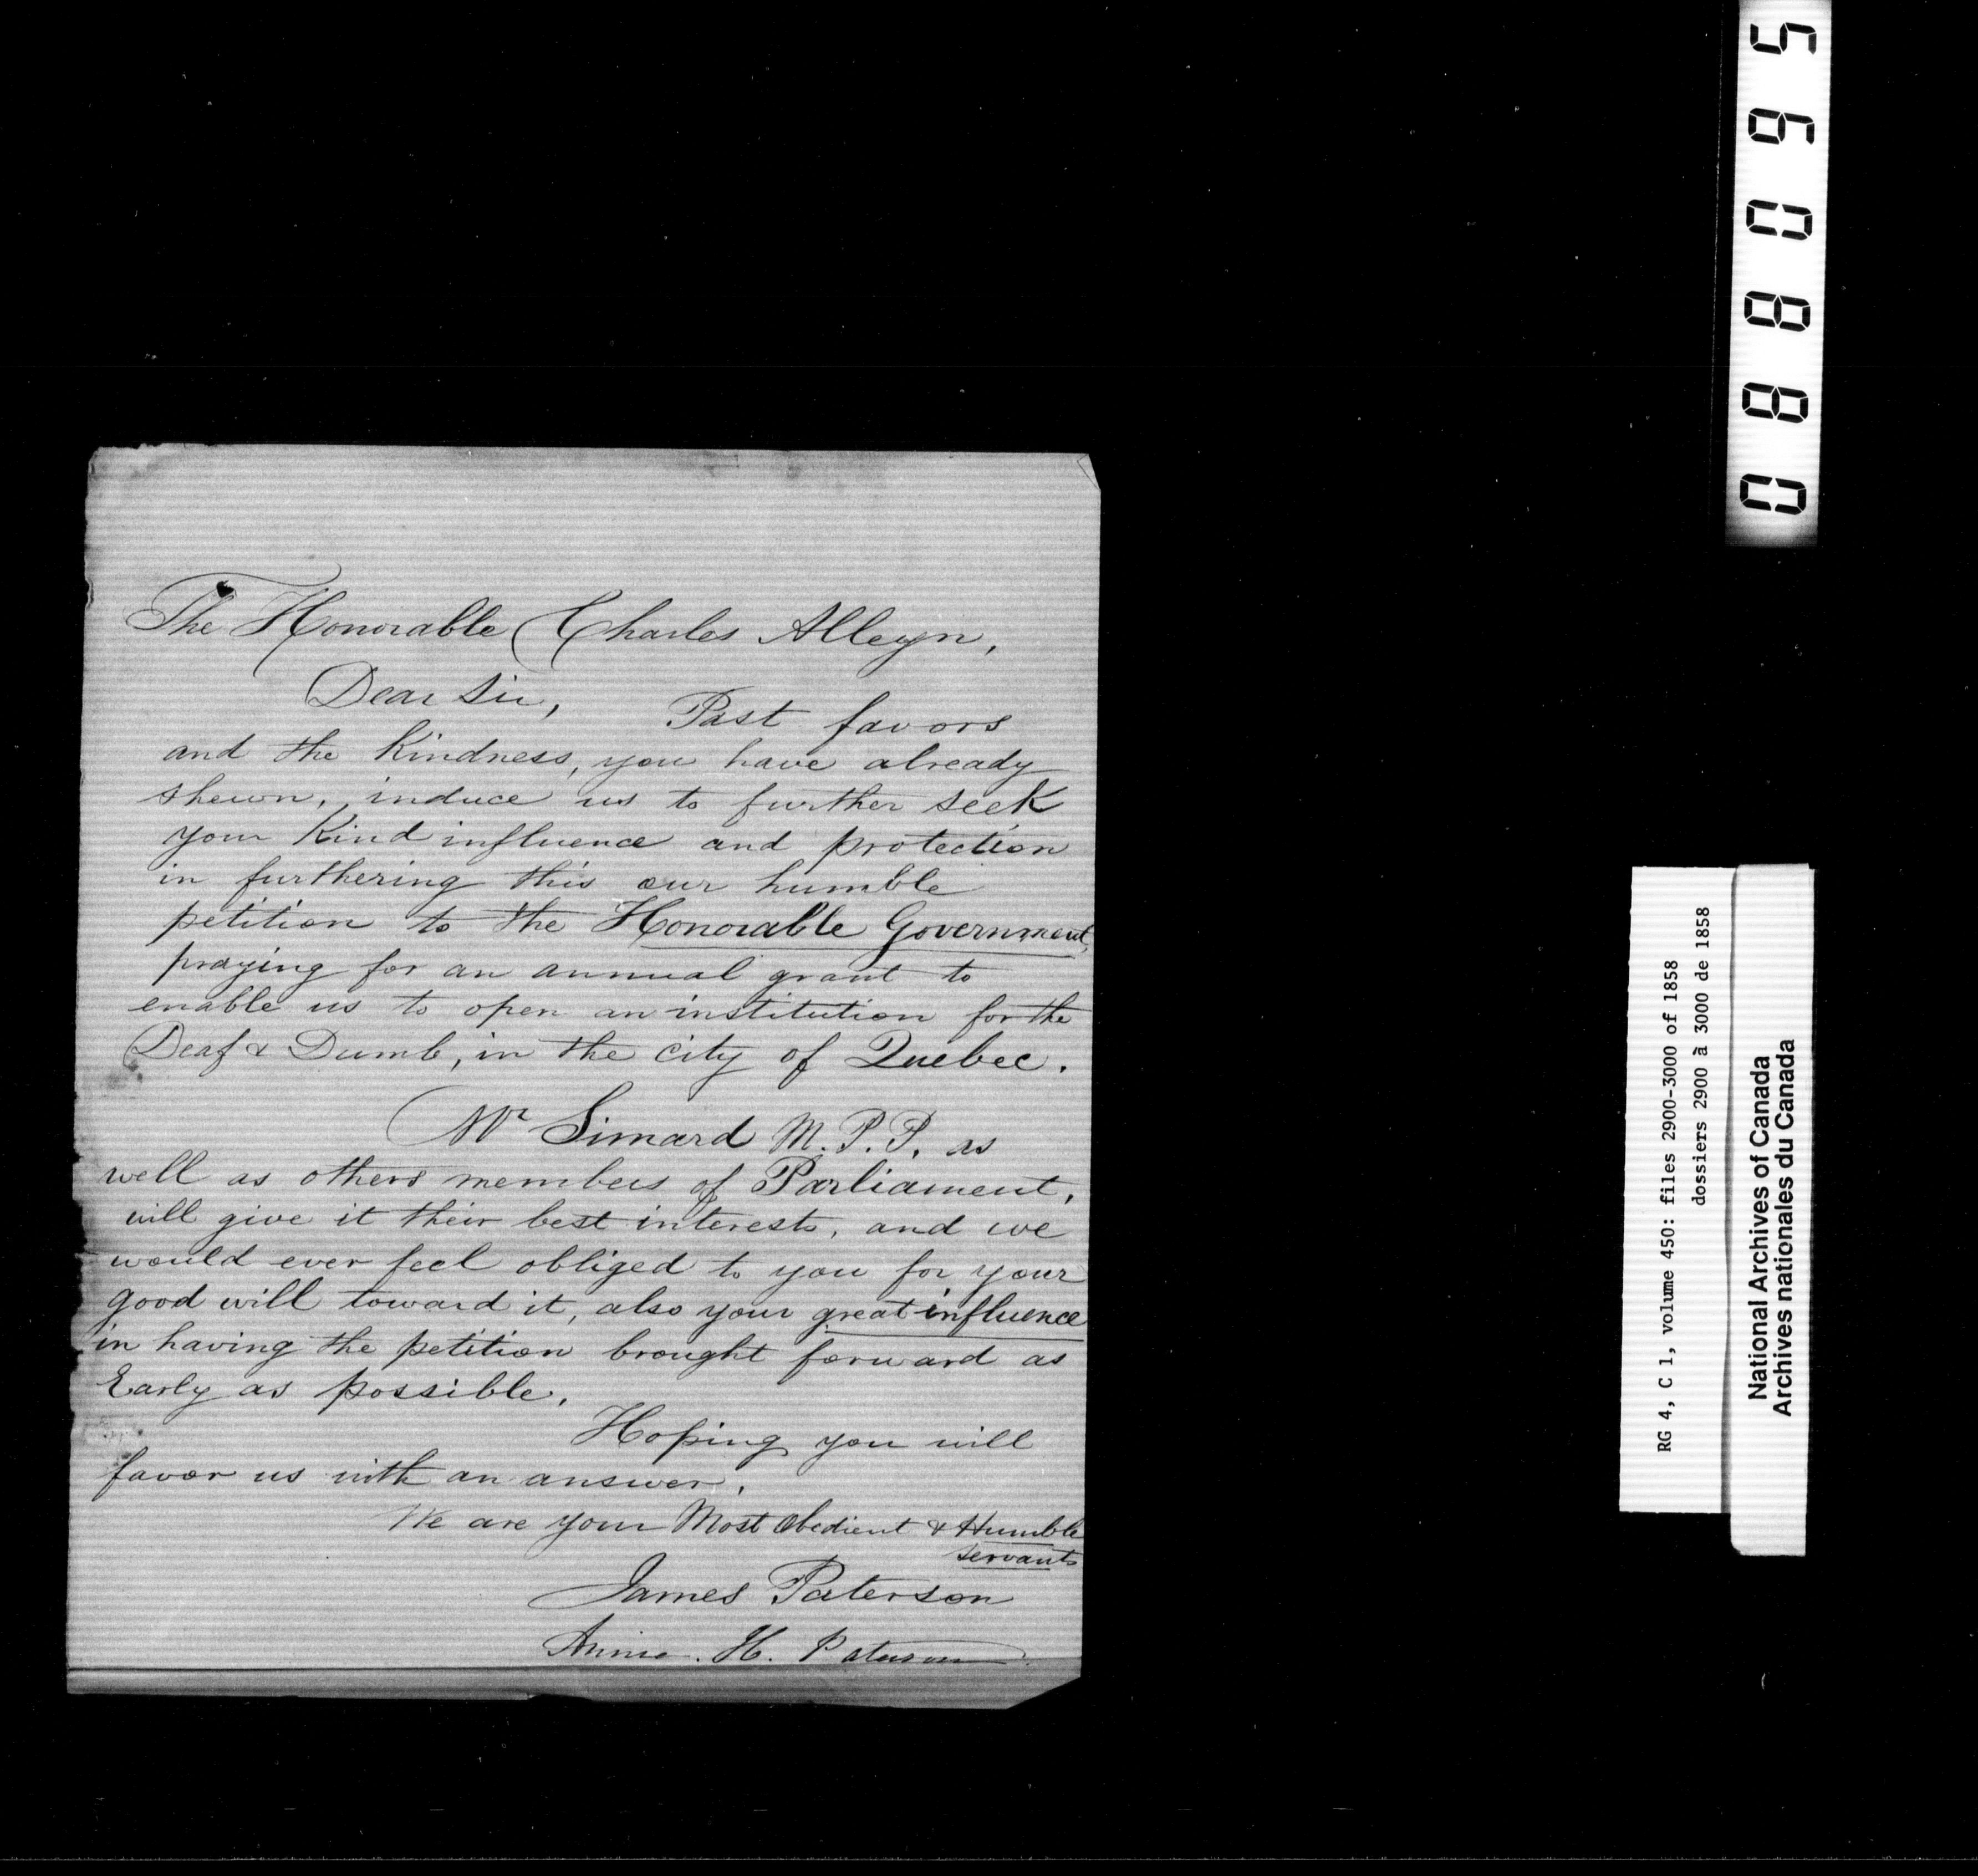 The Honorable Charles Alleyn,
Dear Sir,
Past favors
and the Kindness, you have already
shewn, induce us to further seek
your Kind influence and protection
in furthering this our humble
petition to the Honorable Government,
praying for an annual grant to
enable us to open an institution for the
Deaf & Dumb, in the city of Quebec.
Mr Simard M.P.P. as
well as others members of Parliament,
will give it their best interests, and we
would ever feel obliged to you for your
good will toward it, also your great influence
in having the petition brought forward as
Early as possible.
Hoping you will
favor us with an answer,
We are your Most Obedient & Humble
servants
James Paterson
Annie. H. Paterson
088095
RG 4, C 1, volume 450: files 2900-3000 of 1858
dossiers 2900 à 3000 de 1858
National Archives of Canada
Archives nationales du Canada